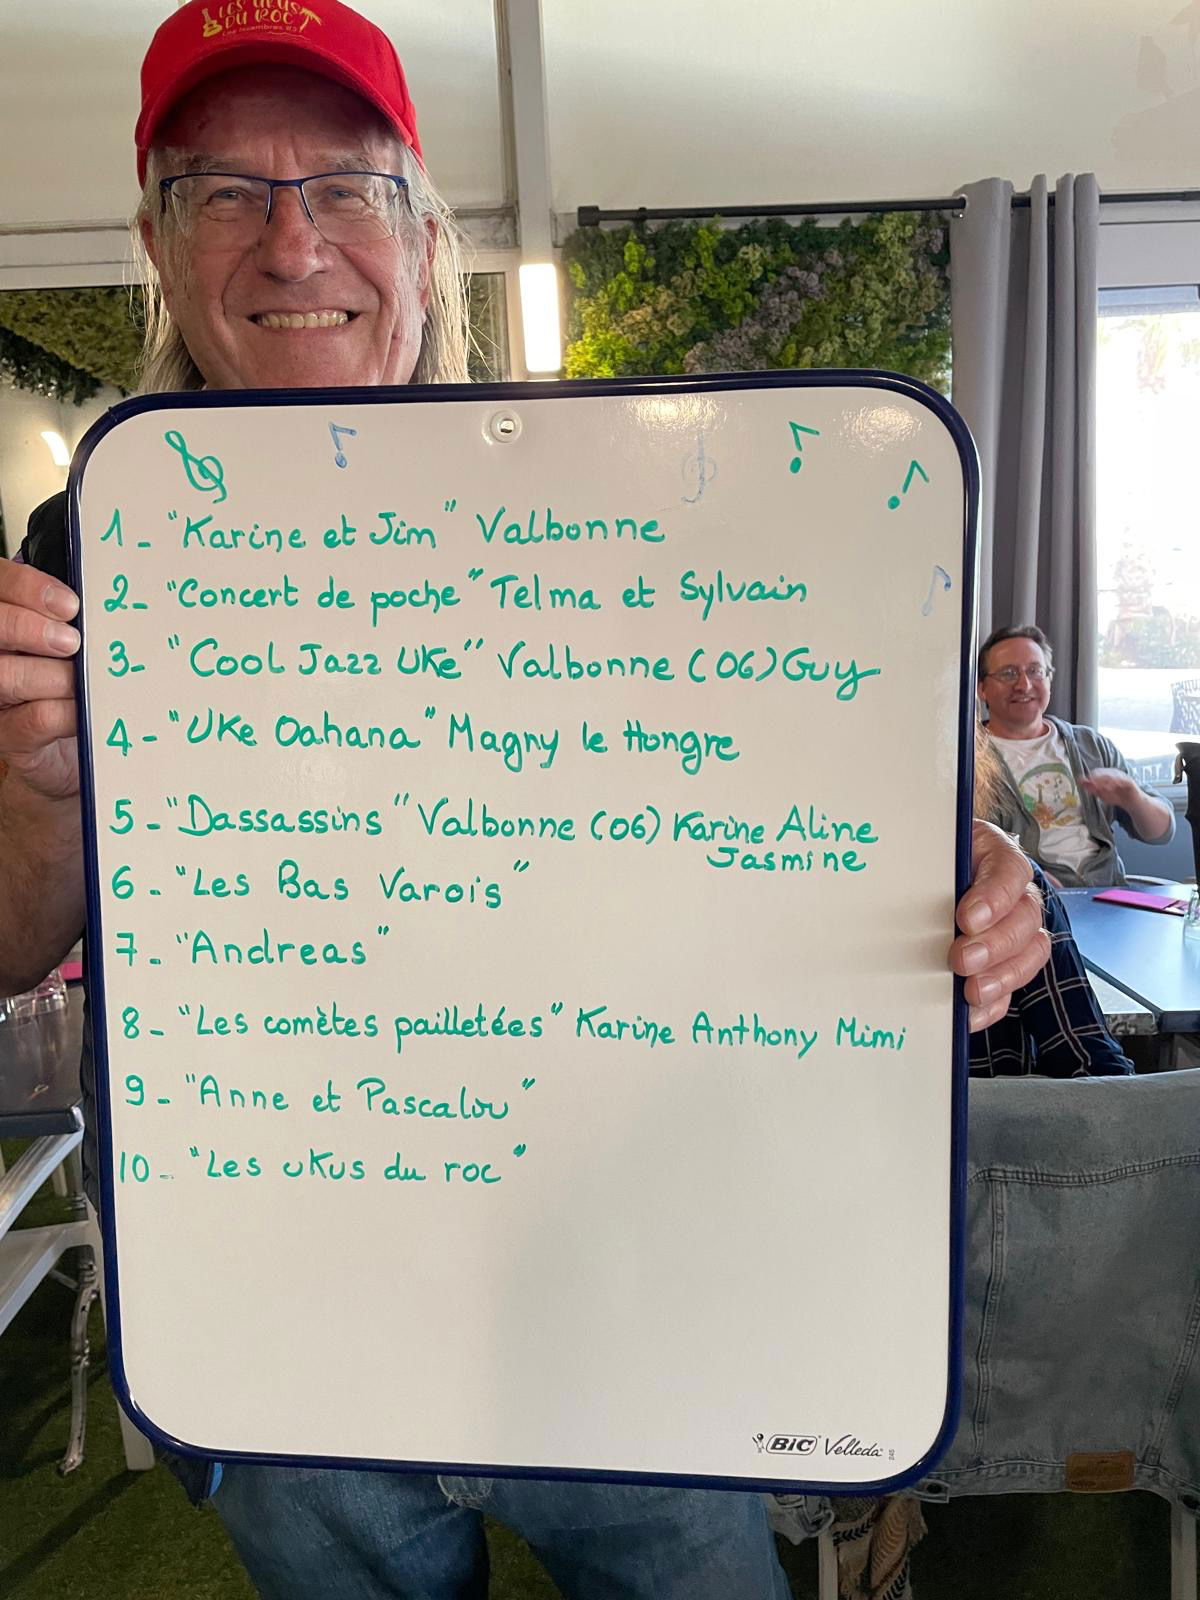 LES UKUS
DU ROC
Les Issambres 83
1_ "Karine et Jim" Valbonne
2_ "Concert de poche" Telma et Sylvain
3_ "Cool Jazz UKe" Valbonne (06) Guy
4_ "UKe Oahana" Magny le Hongre
5_ "Dassassins" Valbonne (06) Karine Aline
Jasmine
6_ "Les Bas Varois"
7_ "Andreas"
8_ "Les comètes pailletées" Karine Anthony Mimi
9_ "Anne et Pascalou"
10_ "Les uKus du roc"
BIC Velleda